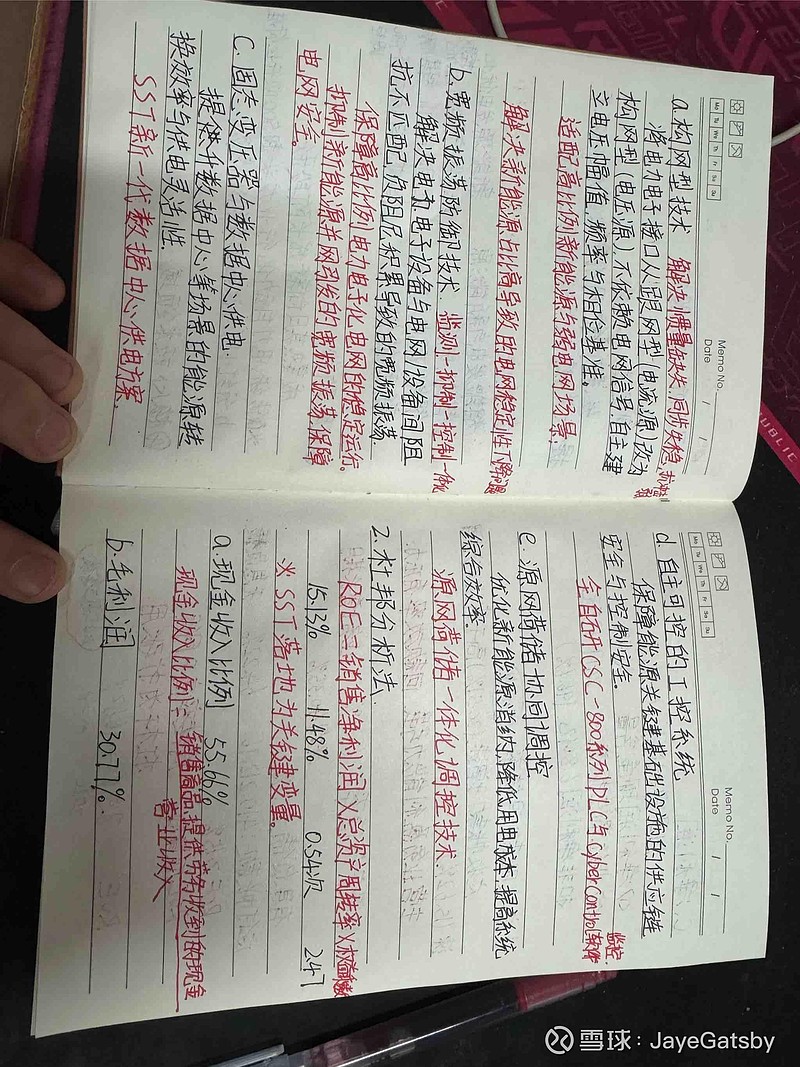 Memo No.
Date / /
Mo Tu We Th Fr Sa Su
a.构网型技术 解决惯量缺失、同步失稳、抗扰
将电力电子接口从跟网型(电流源)改为
构网型(电压源),不依赖电网信号,自主建
立电压幅值、频率与相位基准。
适配高比例新能源与弱电网场景,
解决新能源占比高导致的电网稳定性下降问题
b.宽频振荡防御技术. 监测-抑制-控制一体化
解决电力电子设备与电网/设备间阻
抗不匹配、负阻尼积累导致的宽频振荡
保障高比例电力电子化电网的稳定运行。
抑制新能源并网引发的宽频振荡,保障
电网安全。
C.固态变压器与数据中心供电.
提升数据中心等场景的能源转
换效率与供电灵活性.
SST新一代数据中心供电方案.
Memo No.
Date / /
Mo Tu We Th Fr Sa Su
d.自主可控的工控系统
保障能源关键基础设施的供应链
安全与控制安全.
全自研CSC-800系列PLC与CyberControl监控软件
e.源网荷储协同调控
优化新能源消纳,降低用电成本,提高系统
综合效率
源网荷储一体化调控技术.
2.杜邦分析法.
ROE=销售净利润X总资产周转率X权益乘数
15.13% 11.48% 0.54次 2.47
※SST落地为关键变量。
a.现金收入比例 55.66%
现金收入比例=销售商品、提供劳务收到的现金
营业收入
b.毛利润 30.77%.
PUBLIC
雪球:JayeGatsby